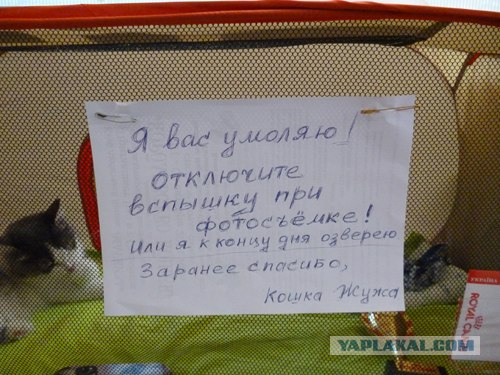 Я вас умоляю!
отключите
вспышку при
фотосъёмке!
или я к концу дня озверею
Заранее спасибо,
Кошка Жужа
УКРАЇНА
ROYAL CA
YAPLAKAL.COM